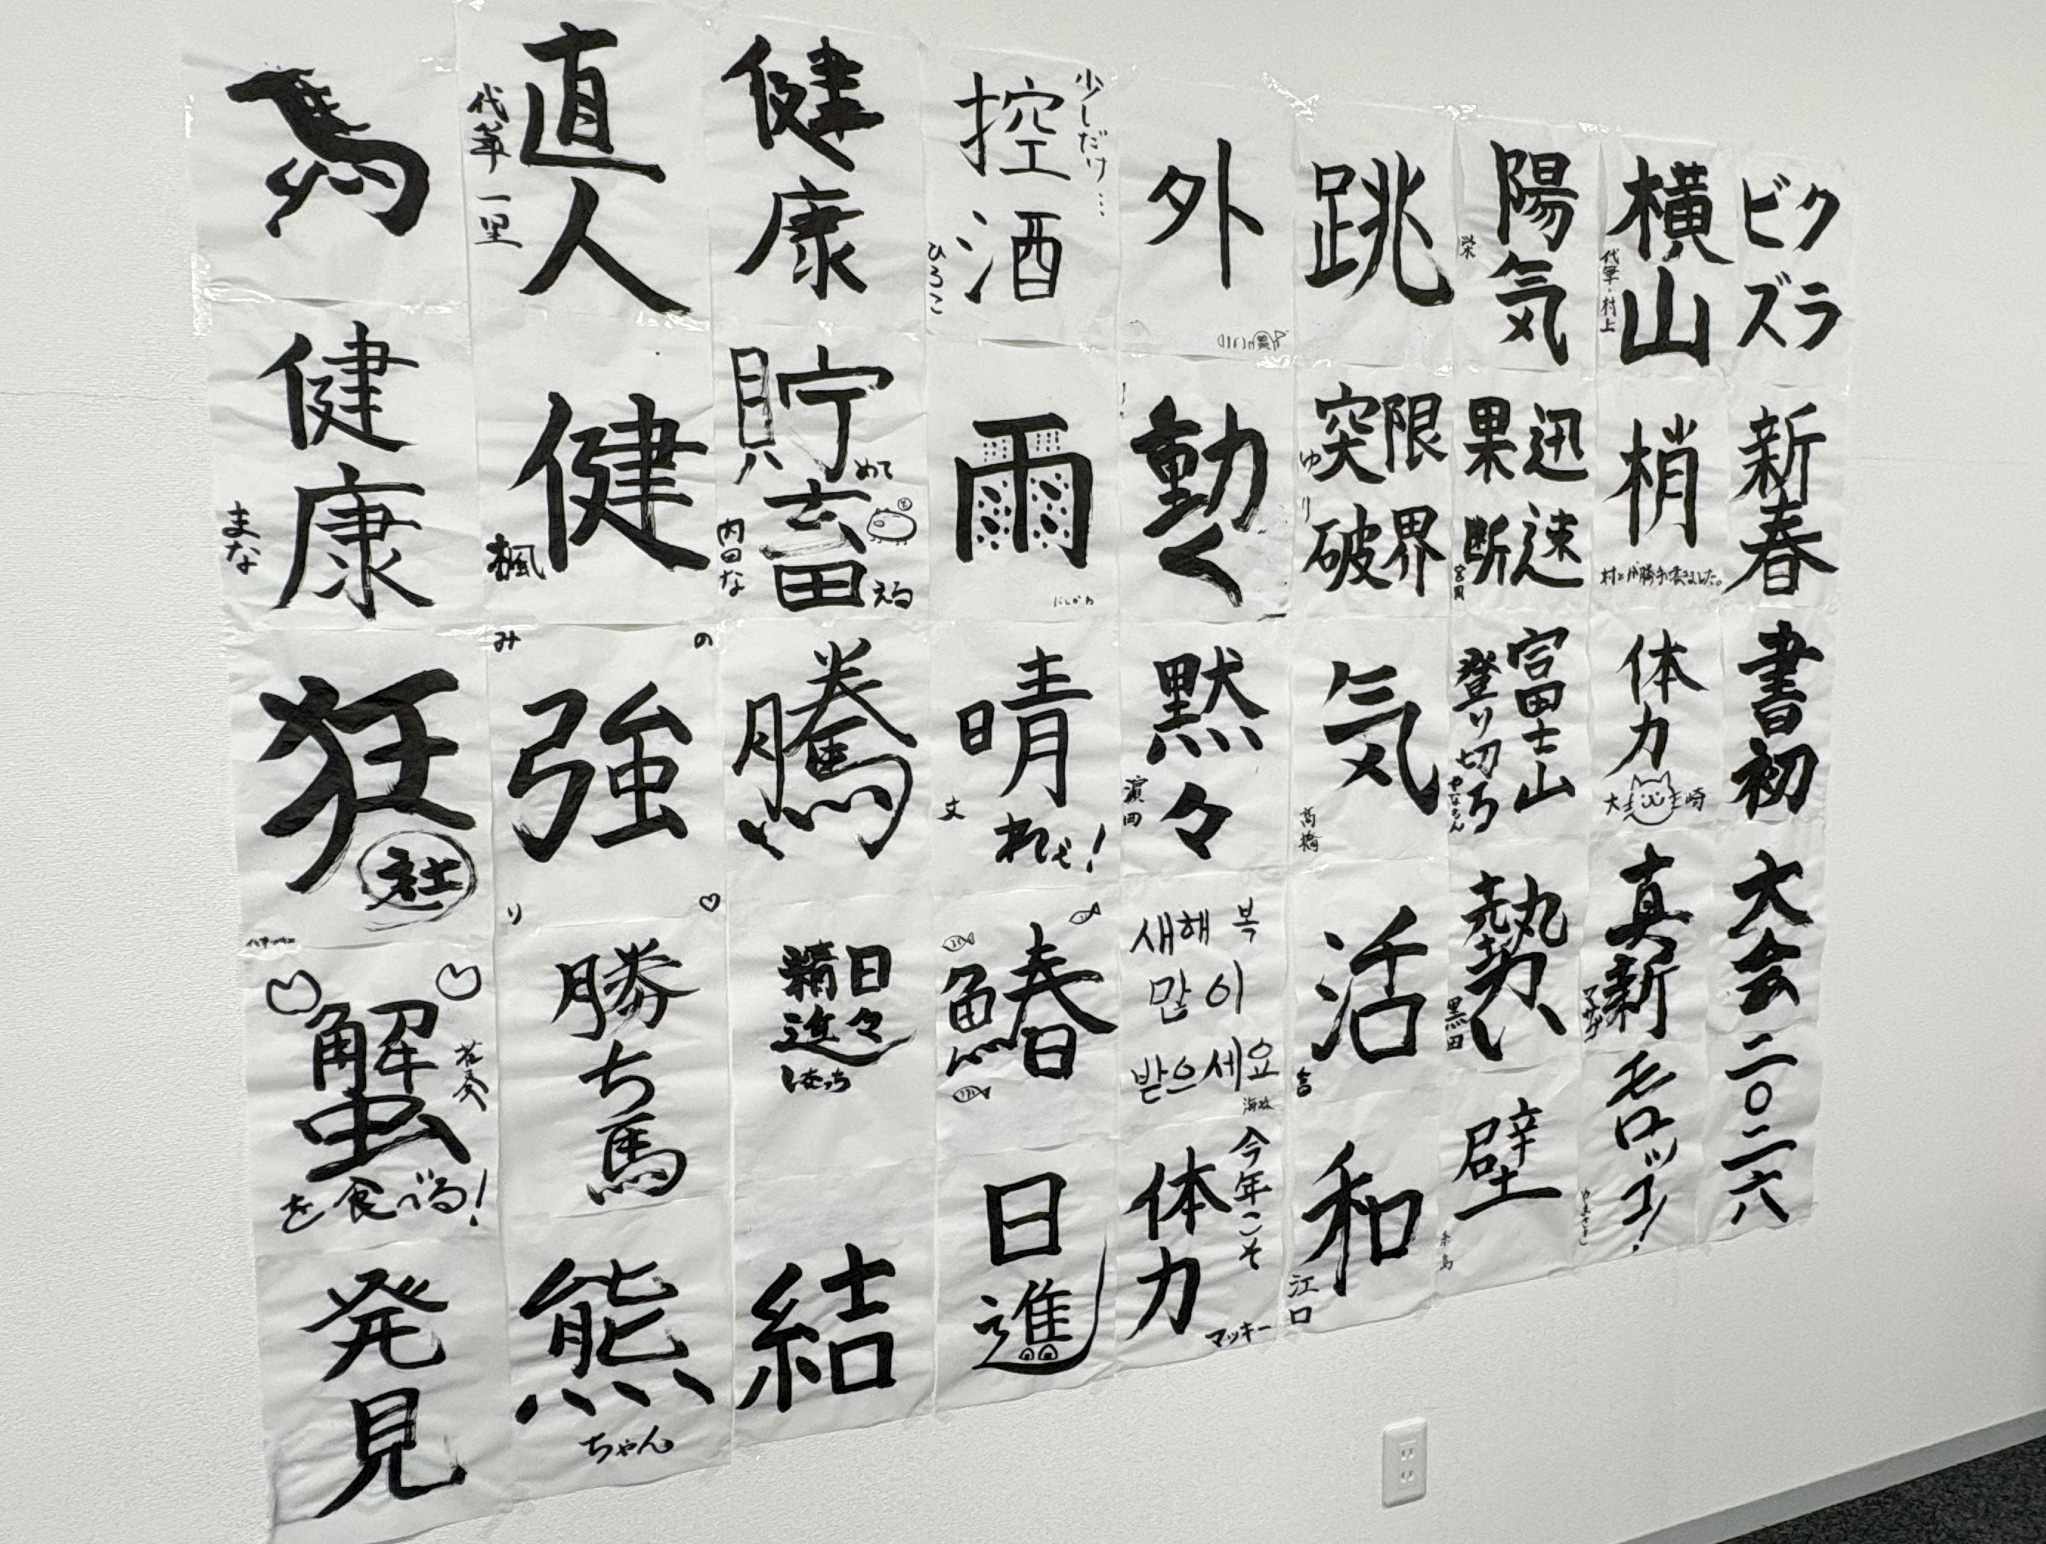 ビクズラ
新春
書初
大会
二〇二六
横山
代筆・村上
梢
村上が勝手に書きました。
体力
大崎
真新
モロッコ!
陽気
栄
迅速
果断
富士山
登り切ろ
やなちん
勢い
黒田
壁
跳
限界
突破
ゆり
気
高橋
活
和
江口
外
動く
黙々
濱田
새해 복
많이
받으세요
今年こそ
体力
マッキー
少しだけ…
控酒
ひろこ
雨
にしかわ
晴れて!
丈
鰆
日進
健康
貯めて
蓄える
内田な
騰
日々
精進
結
直人
代筆 一里
健
楓
強
みのり♡
勝ち馬
熊
ちゃん
馬
健康
まな
狂
蟹
を食べる!
若奏
発見